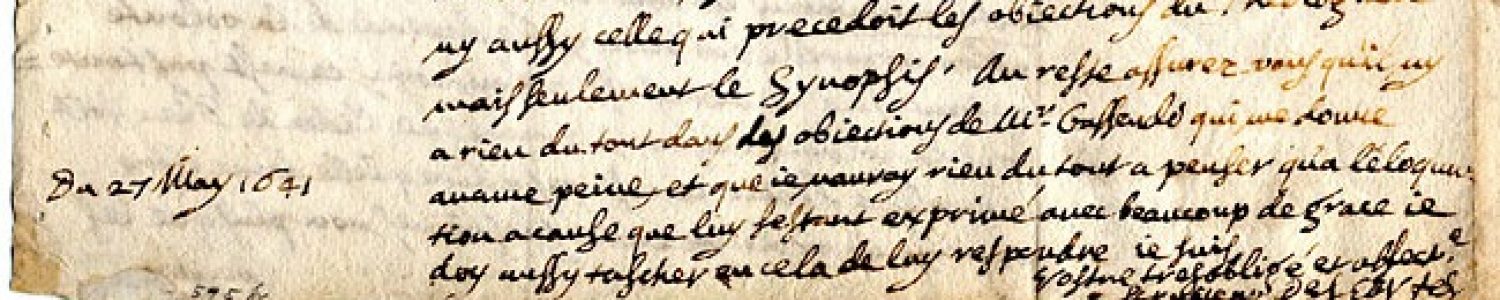 ny aussy celle qui precedoit les obiections du
mais seulement le Synopsis. Au reste assurez vous qu'il ny
a rien du tout dans les obiections de Mr. Gassendo qui me donne
aucune peine, et que ie nauray rien du tout a penser qua leloquu-
tion a cause que luy sestant exprimé auec beaucoup de grace ie
doy aussy tascher en cela de luy respondre ie suis
Vostre tresobligé et affect.e
Des Cartes
Du 27 May 1641